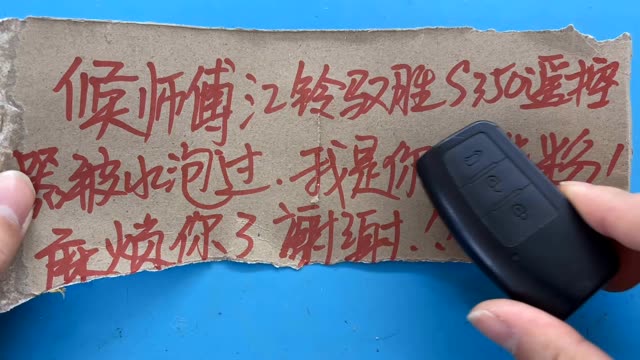 候师傅江铃驭胜S350遥控
器被水泡过.我是你粉!
麻烦你了謝謝.!